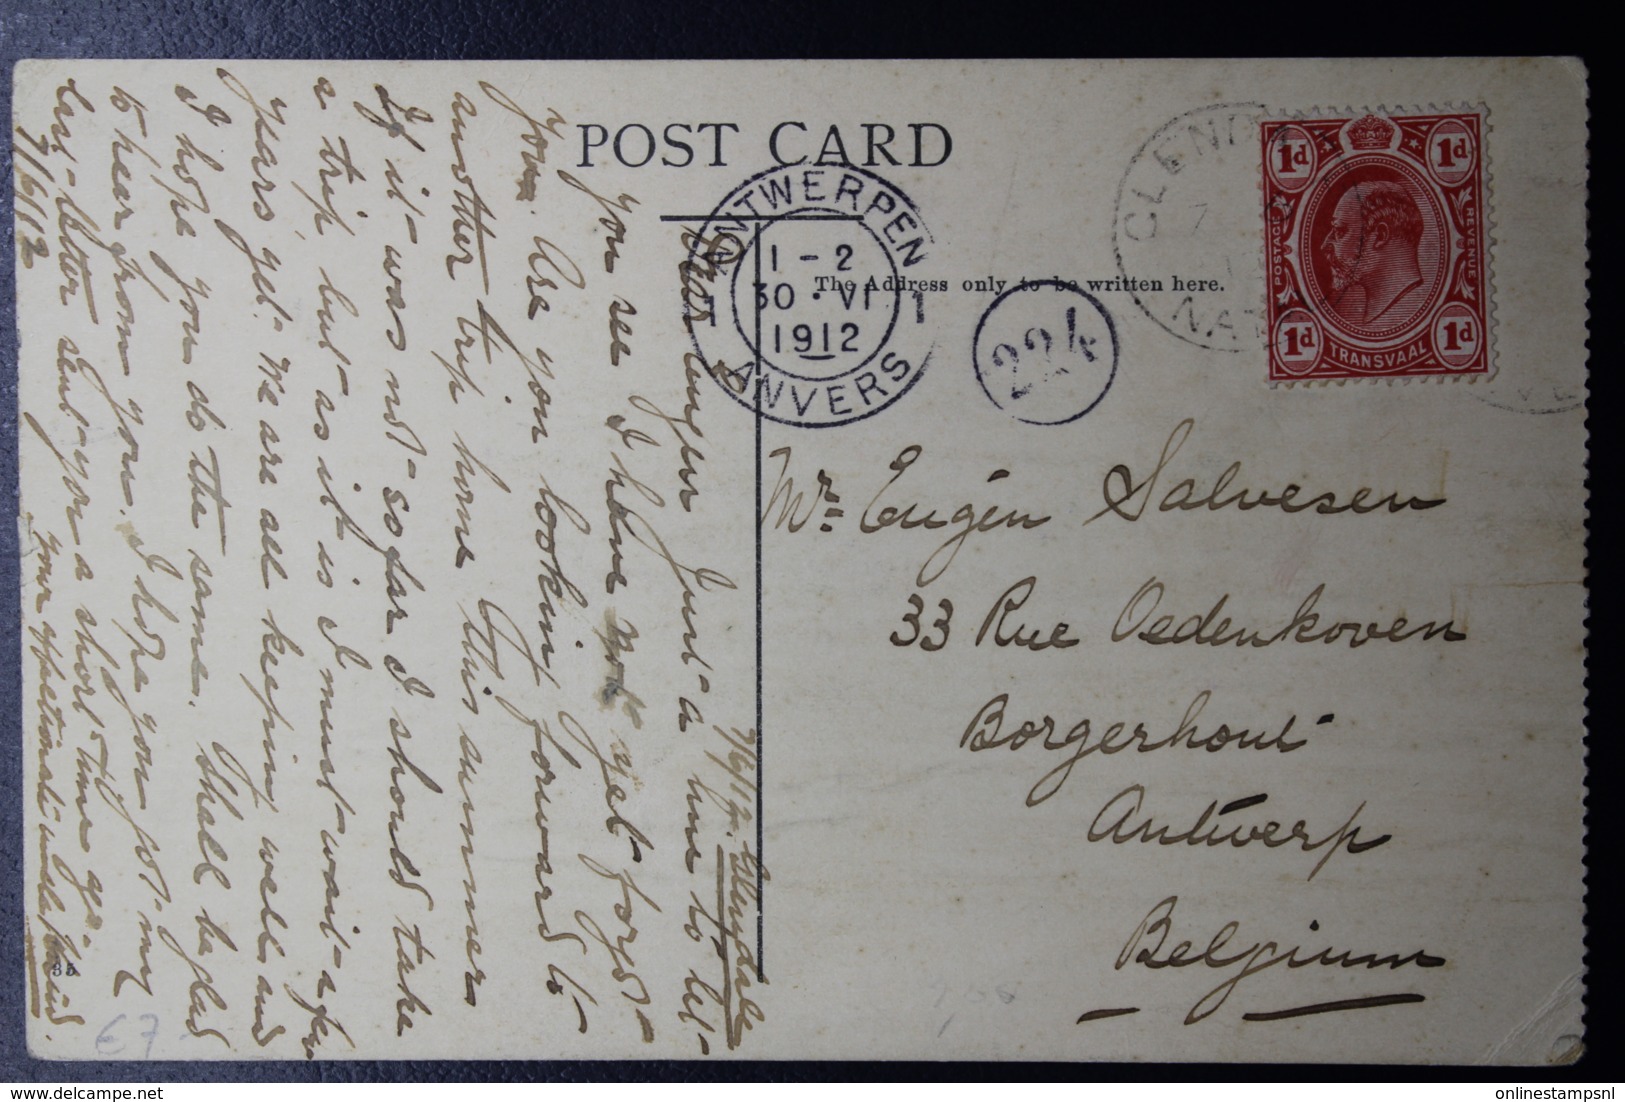 POST CARD
The Address only to be written here.
ANTWERPEN
1 - 2
30 · VI
1912
1 1
ANVERS
224
CLEND
NAT
1d 1d
POSTAGE
REVENUE
1d 1d
TRANSVAAL
Mr. Eugén Salvesen
33 Rue Oedenkoven
Borgerhout
Antwerp
Belgium
7/6/12. Glendale
Just a line to let
you see I have not yet forgot
you. Are you looking forward to
another trip home this summer
If it was not so far I should take
a trip but as it is I must wait a few
years yet. We are all keeping well and
I hope you do the same. Shall be glad
to hear from you. I hope you got my
last letter sent you a short time ago.
7/6/12
your affectionate
friend.
35
€7
delcampe.net
onlinestampsnl